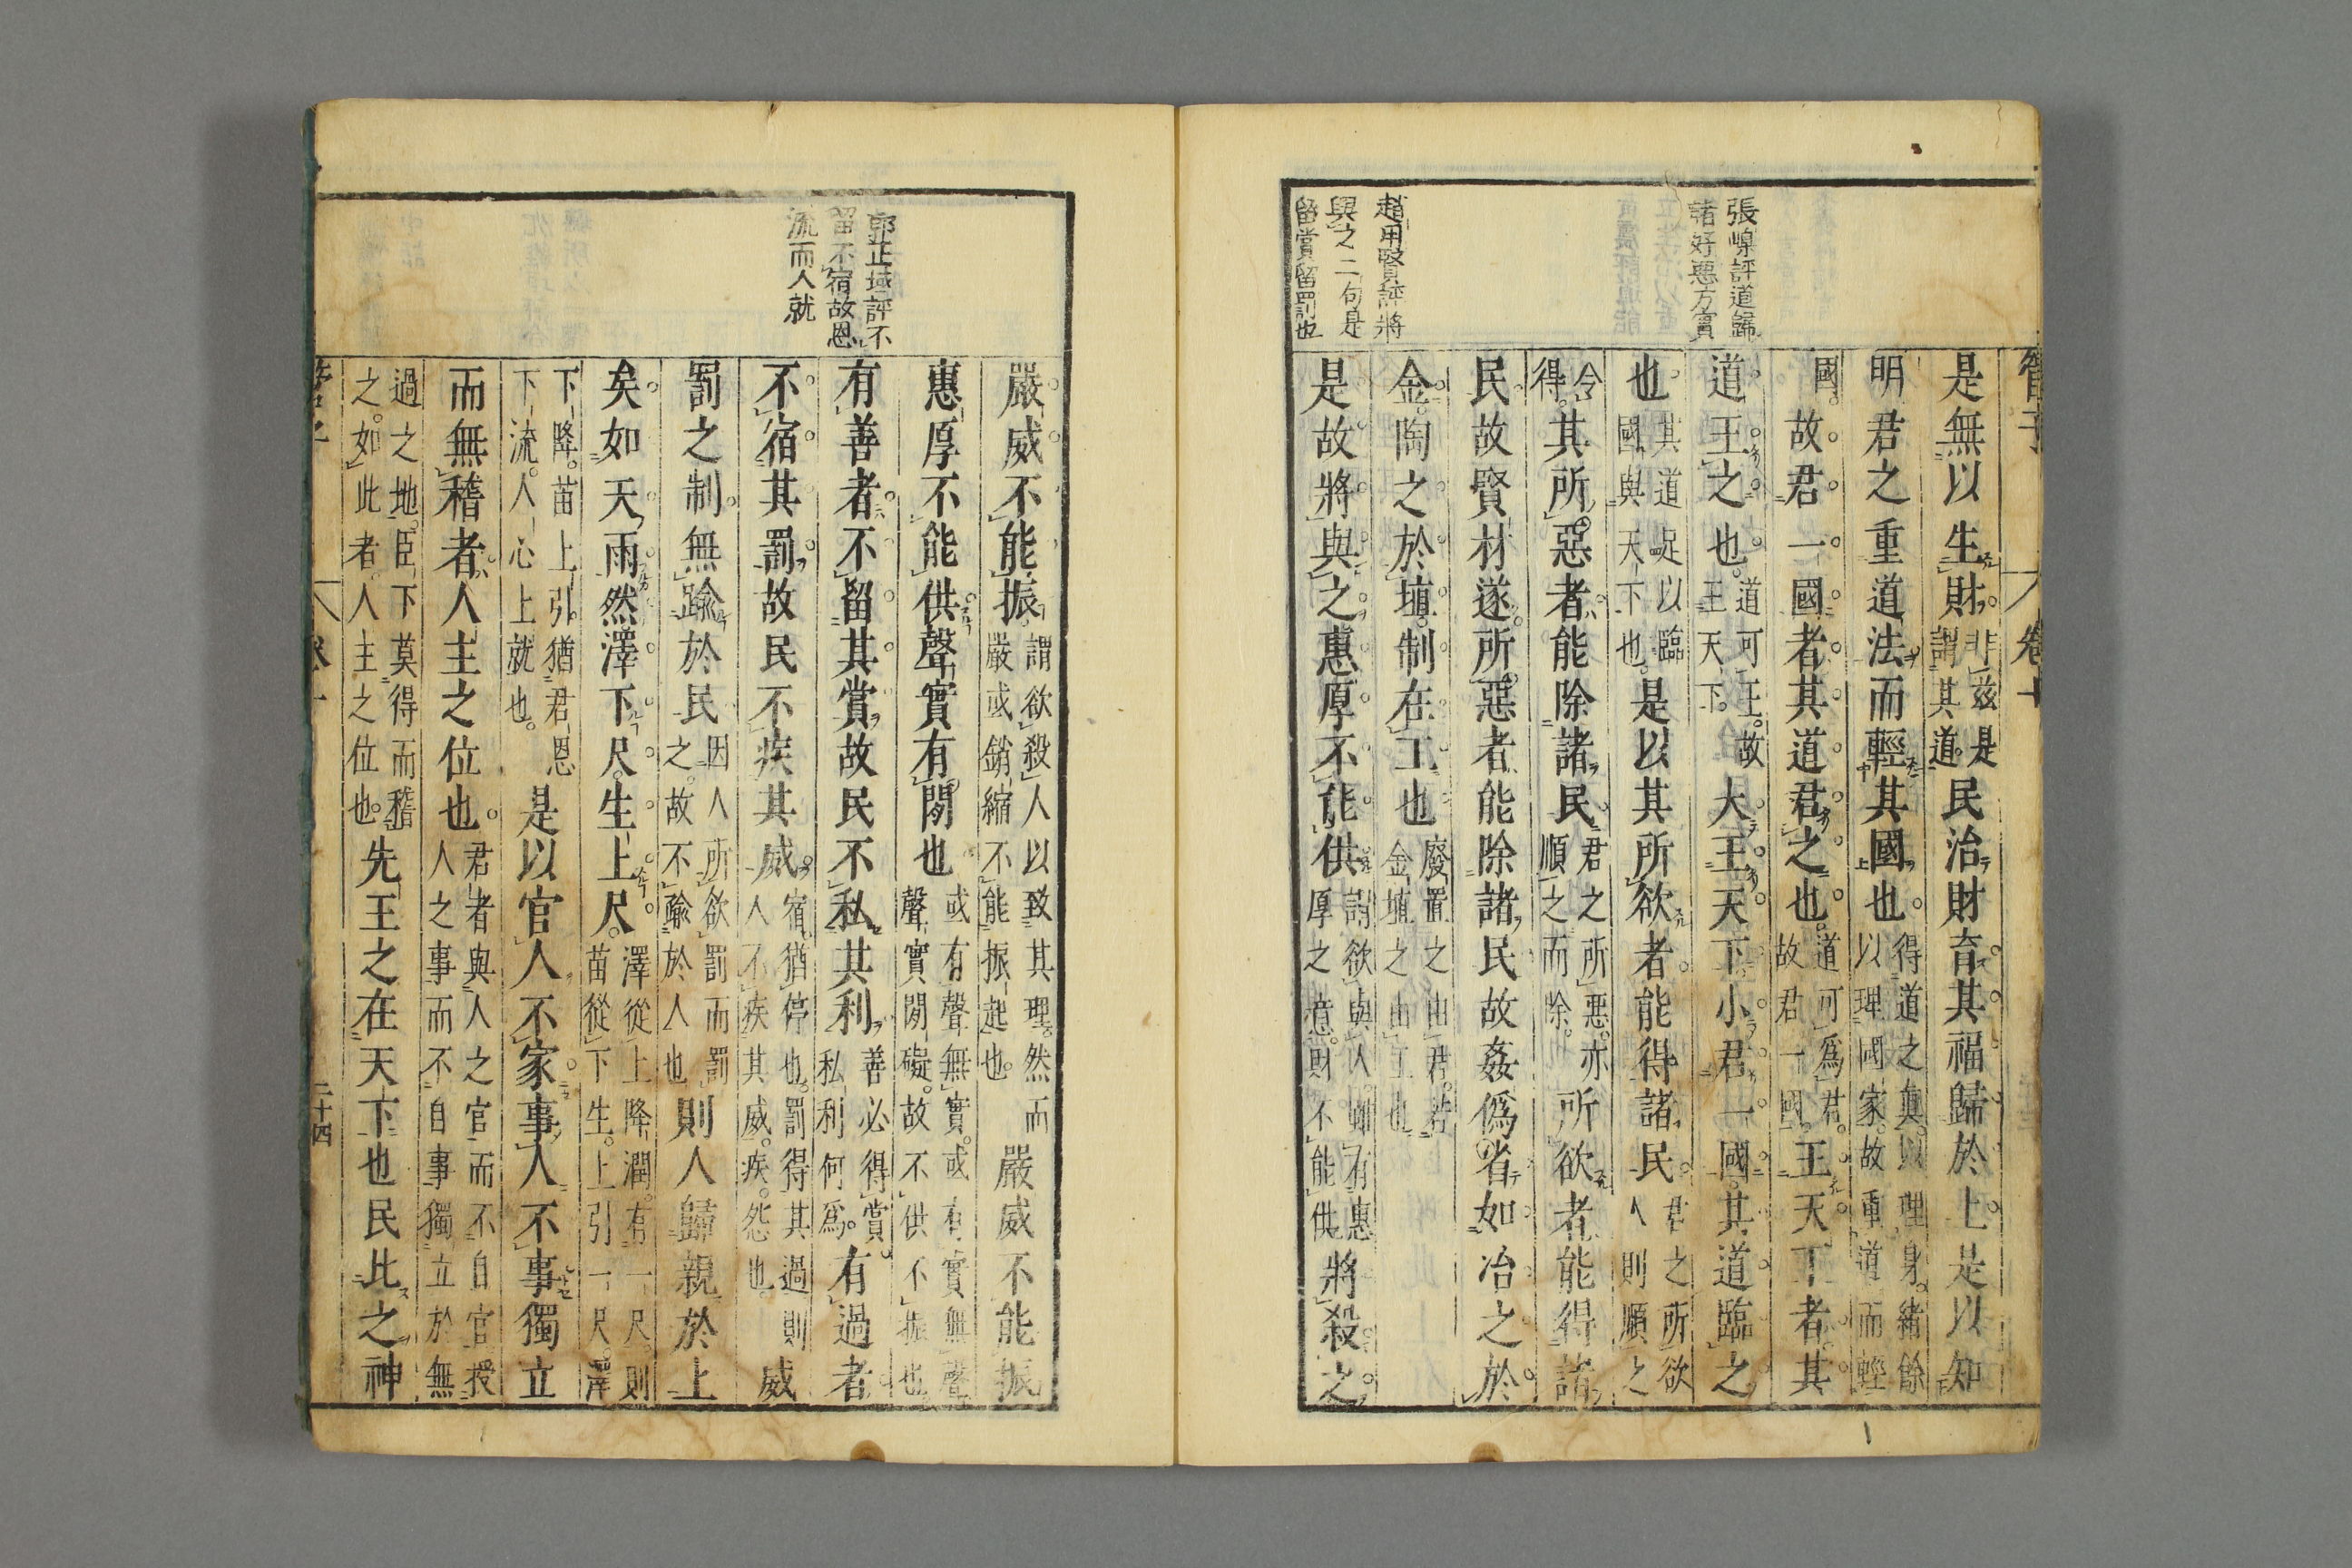 管子
卷十
張㠋評道歸
諸好惡方實
趙用賢評將
與之二句是
留賞留罰也
是無以生財非茲是謂其道民治財育其福歸於上是以知
明君之重道法而輕其國也得道之真以理身緒餘以理國家故重道而輕
國故君一國者其道君之也道可爲君故君一國王天下者其
道王之也道可王故王天下大王天下小君一國其道臨之
也其道足以臨國與天下也是以其所欲者能得諸民君之所欲人則順之
令得其所惡者能除諸民君之所惡亦順之而除所欲者能得諸
民故賢材遂所惡者能除諸民故姦僞省如冶之於
金陶之於埴制在工也廢置之由君若金埴之由工也
是故將與之惠厚不能供謂欲與人則有惠厚之意財不能供將殺之
郭正域評不
留不宿故恩
流而人就
嚴威不能振謂欲殺人以致其理然而嚴或銷縮不能振起也嚴威不能振
惠厚不能供聲實有閒也或有聲無實或有實無聲聲實閒礙故不供不振也
有善者不留其賞故民不私其利善必得賞私利何爲有過者
不宿其罰故民不疾其威宿猶停也罰得其過則人不疾其威疾怨也威
罰之制無踰於民因人所欲罰而罰之故不踰於人也則人歸親於上
矣如天雨然澤下尺生上尺澤從上降潤有一尺則苗從下生上引一尺澤
下降苗上引猶君恩下流人心上就也是以官人不家事人不事獨立
而無稽者人主之位也君者與人之官而不自官授人之事而不自事獨立於無
過之地臣下莫得而稽之如此者人主之位也先王之在天下也民比之神
管子
卷十
二十四